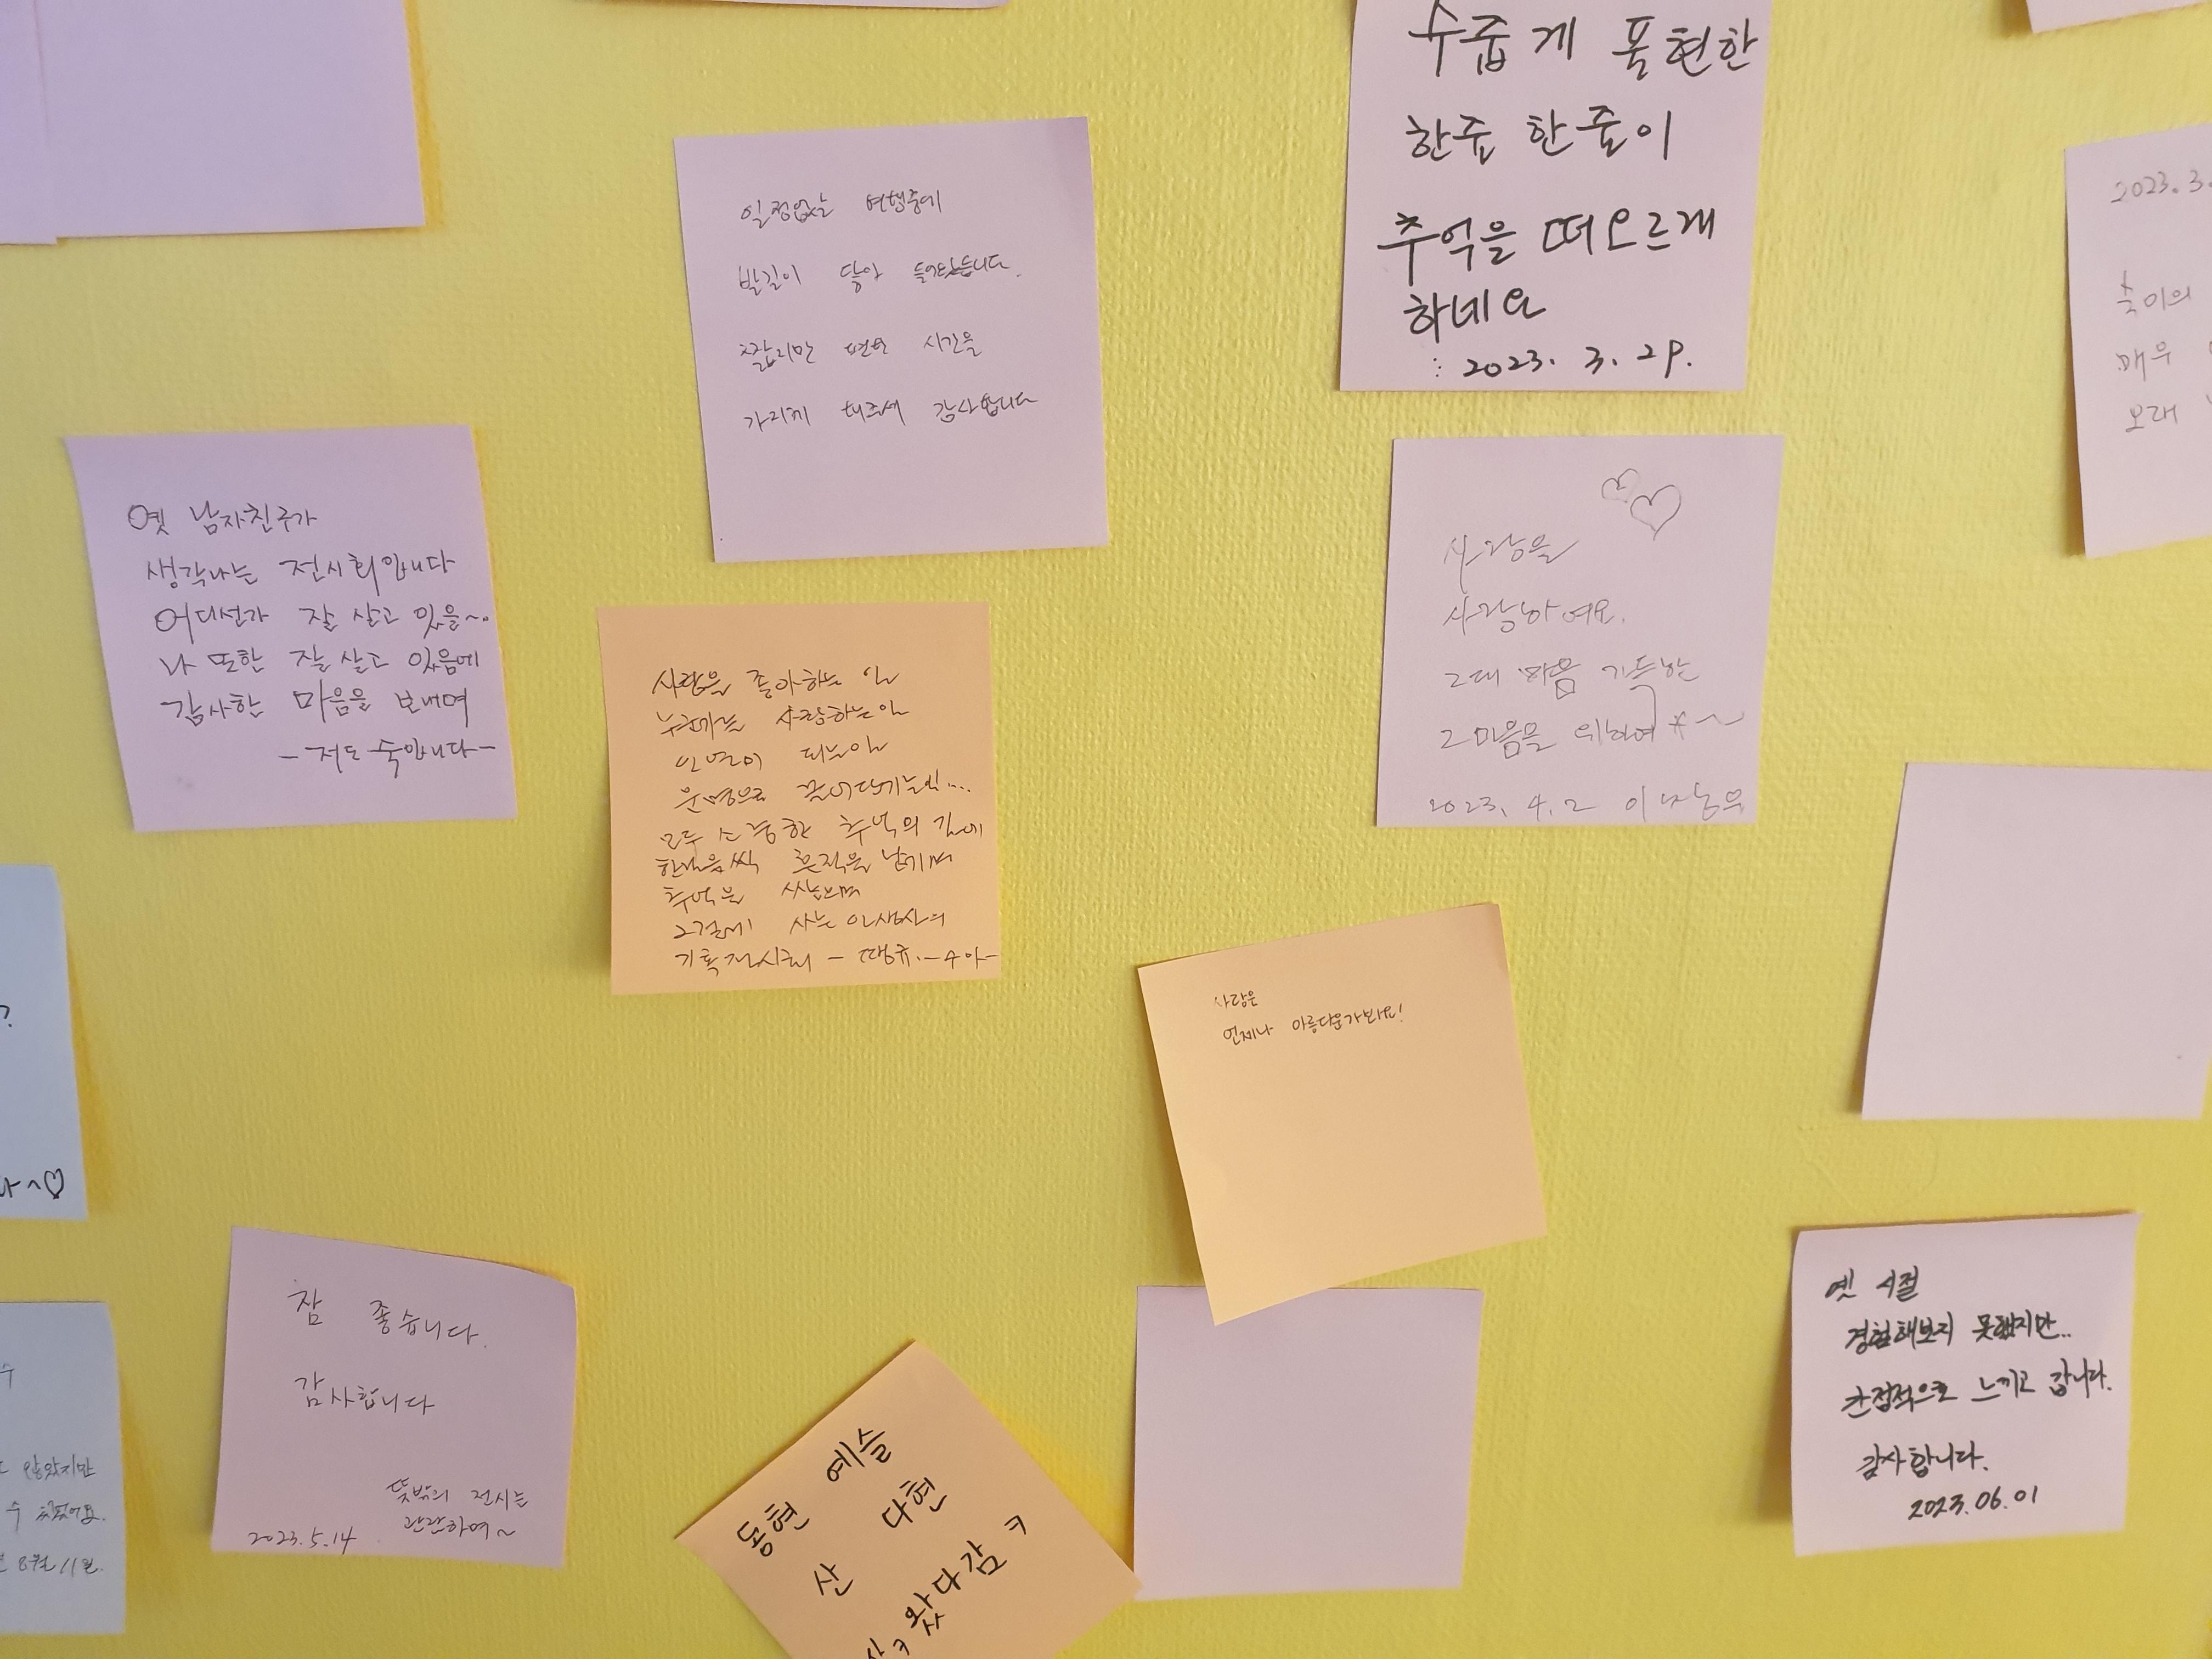 수줍게 표현한
한줄 한줄이
추억을 떠오르게
하네요
: 2023. 3. 29.
일정없는 여행중에
발길이 닿아 들어왔습니다.
짧지만 편한 시간을
가지게 해주셔 감사합니다
2023. 3.
매우
오래
옛 남자친구가
생각나는 전시회입니다
어디선가 잘 살고 있을~.
나 또한 잘 살고 있음에
감사한 마음을 보내며
- 저도 숙입니다 -
사랑을
사랑하여요.
그대 마음 가득한
그 마음을 위하여
2023. 4. 2
사람을 좋아하는 일
누군가는 사랑하는 일
인연이 되는 일
운명으로 끌어당기는 일...
모두 소중한 추억의 길에
한걸음씩 흔적을 남기며
추억은 쌓으며
그결에 사는 인생사의
기획전시회 - 땡큐.- 수아-
사랑은
언제나 아름다운가봐요!
?
다~♡
참 좋습니다.
감사합니다
뜻밖의 전시는
관람하여~
2023.5.14
수
않았지만
수 있었어요.
8월 11일.
동현 예슬
산 다현
왔다감 ㅋ
옛 시절
경험해보지 못했지만..
간접적으로 느끼고 갑니다.
감사합니다.
2023.06.01